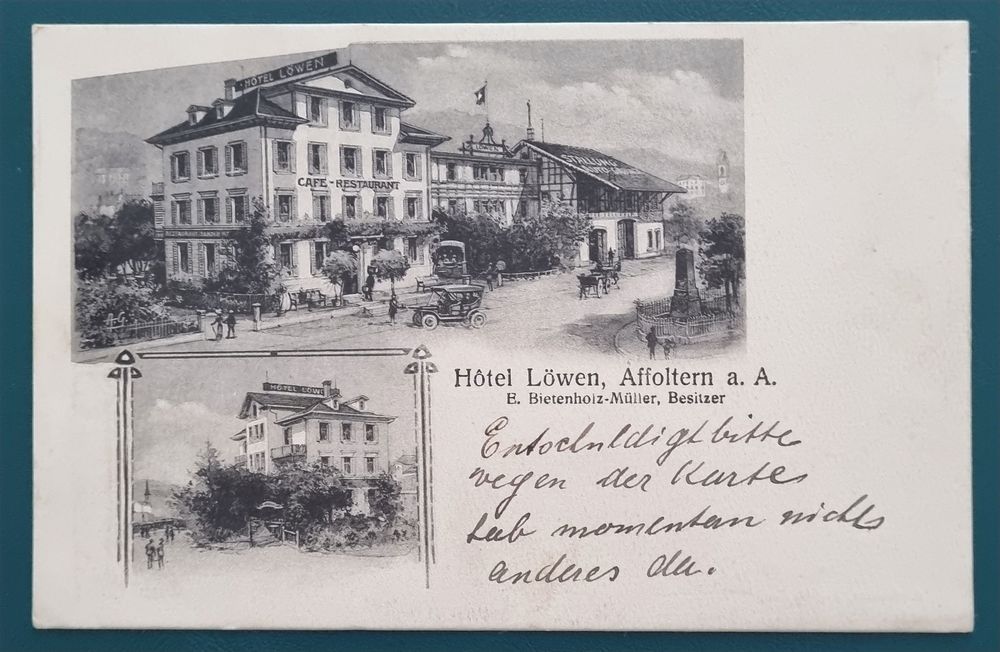 HÔTEL LÖWEN
CAFE-RESTAURANT
LÖWEN
STALLUNG
HÔTEL LÖWE
Hôtel Löwen, Affoltern a. A.
E. Bietenholz-Müller, Besitzer
Entschuldigt bitte
wegen der Karte
hab momentan nichts
anderes da.